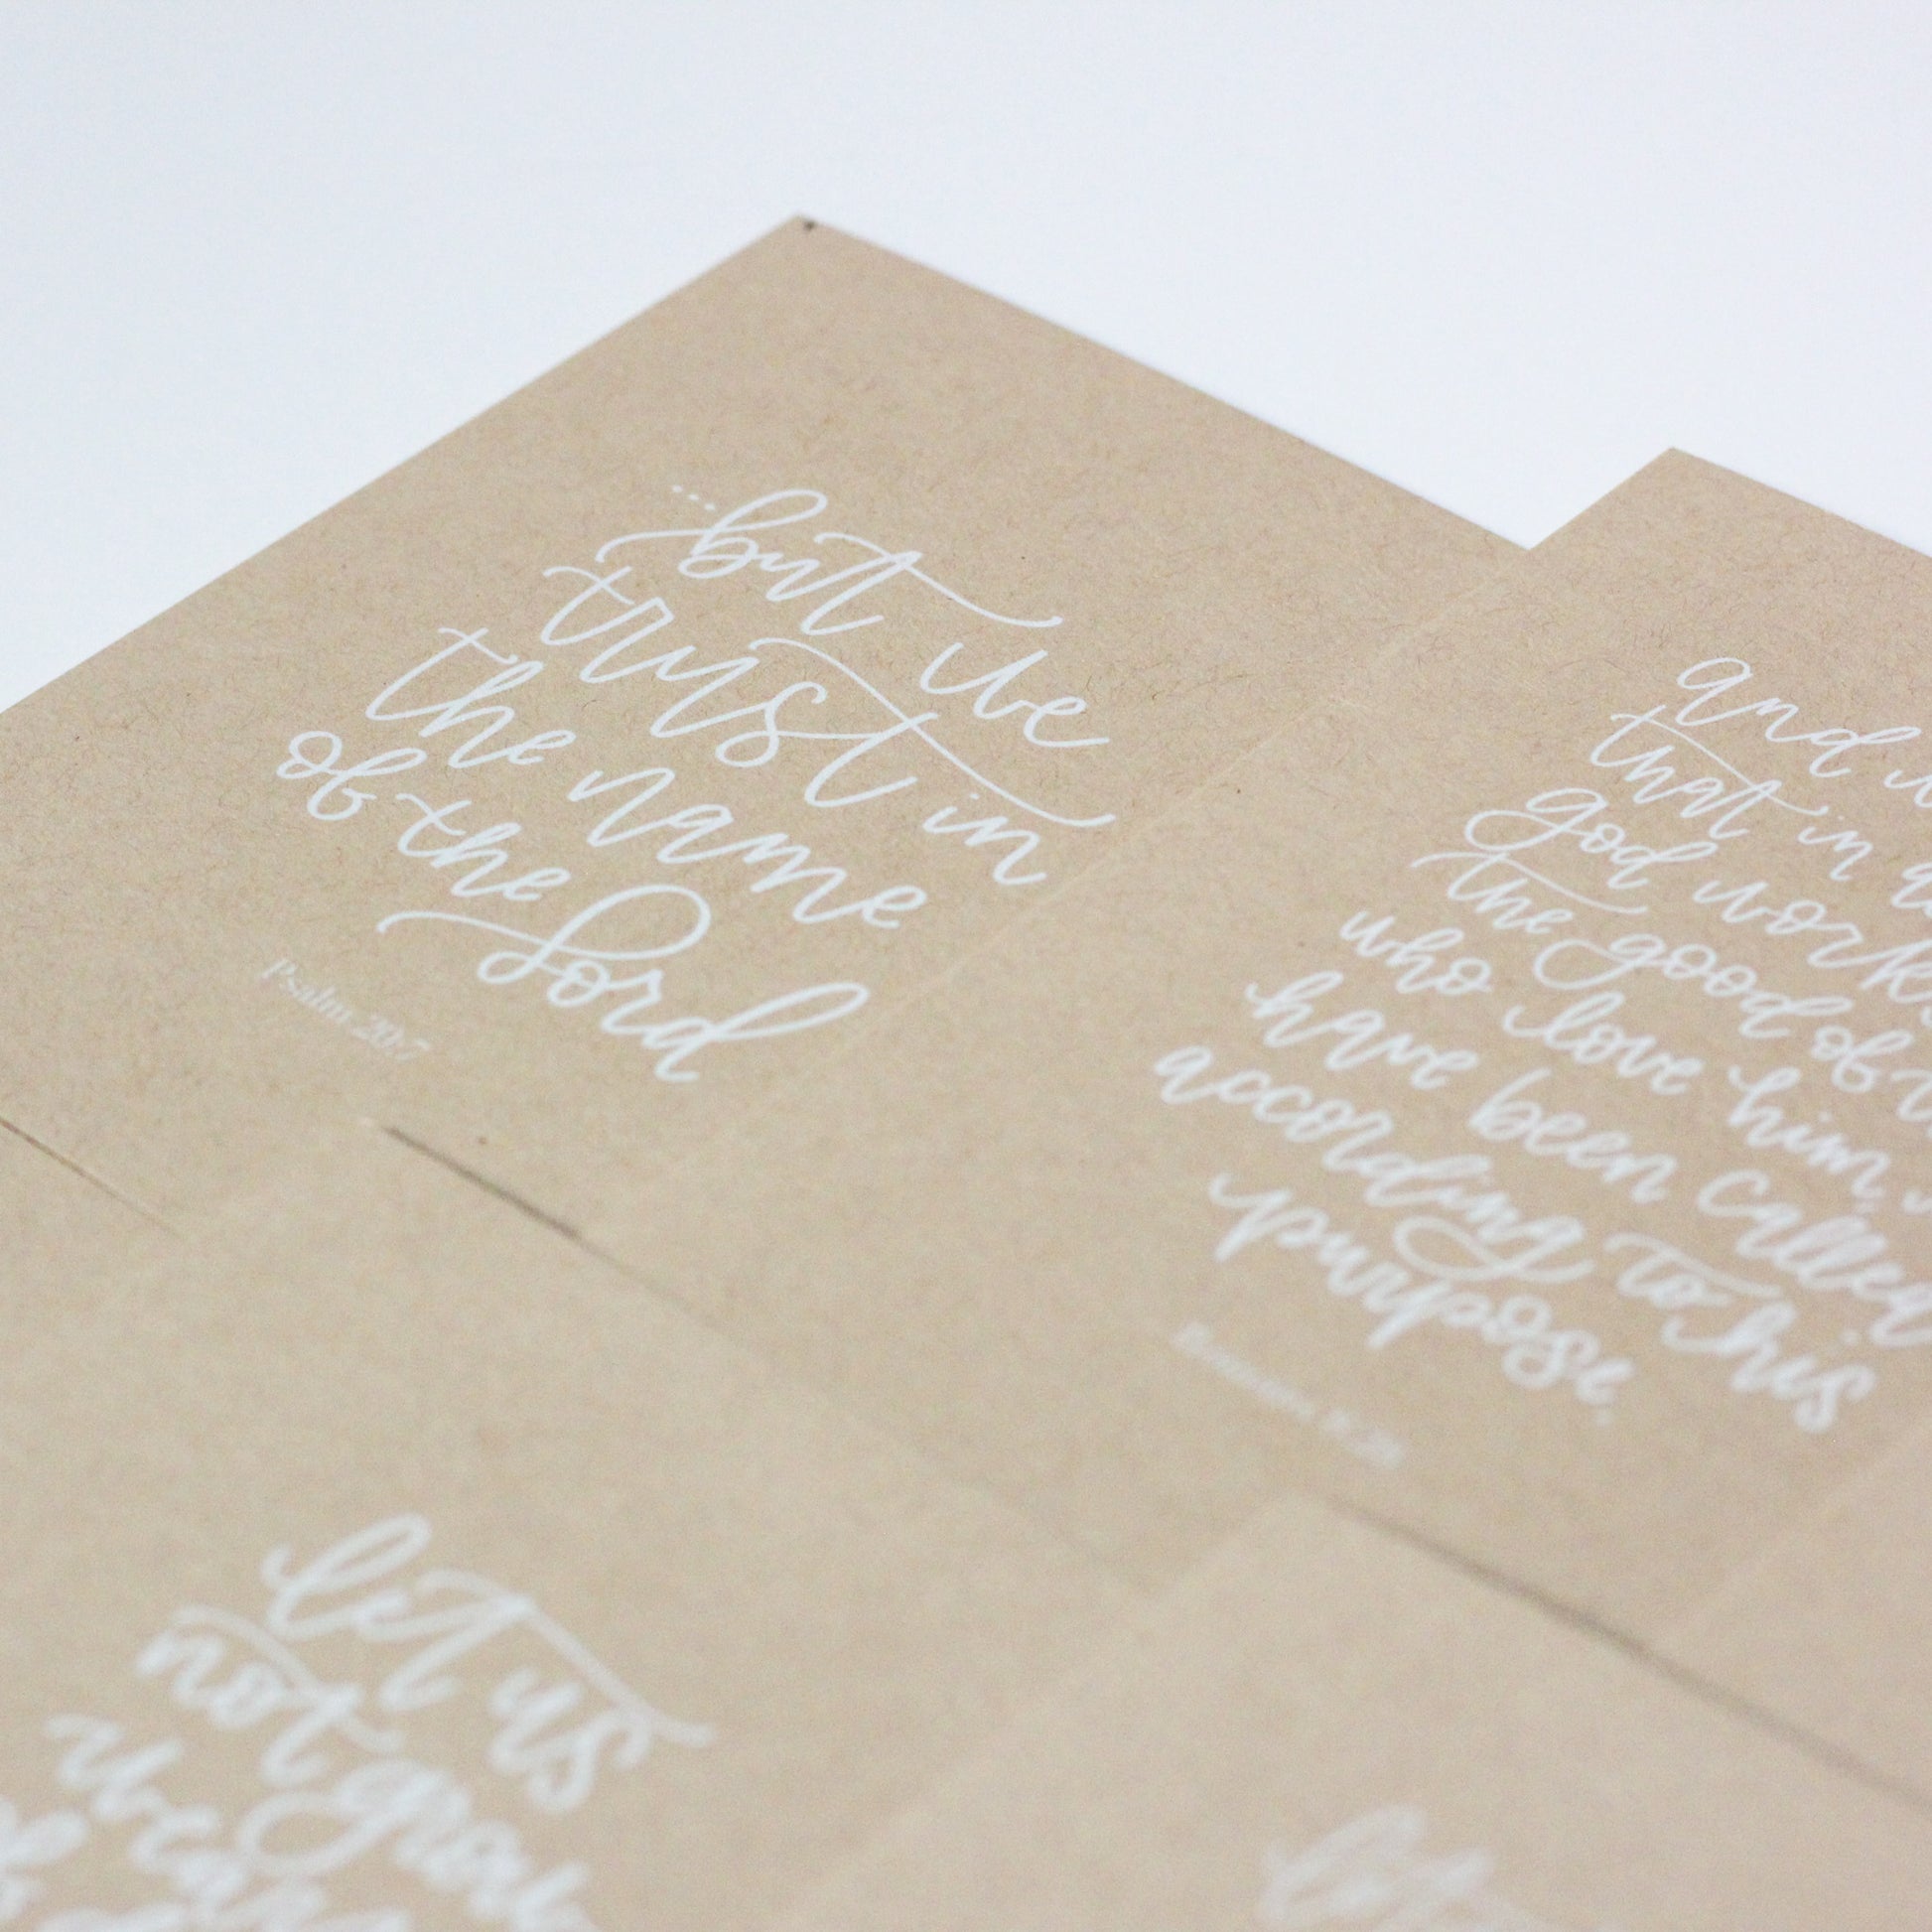 ...but we
trust in
the name
of the Lord
Psalm 20:7
and
that in
god work
the good of
who love him,
have been called
according to his
purpose.
Romans 8:28
let us
not grow